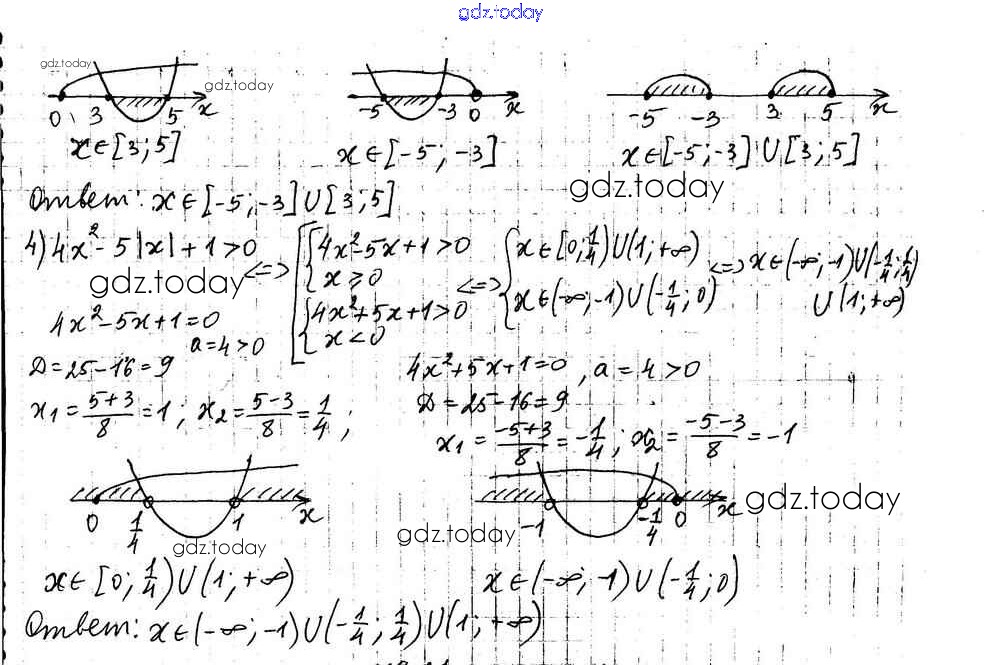 gdz.today
gdz.today
gdz.today
0 3 5 x
-5 -3 0 x
-5 -3 3 5 x
x∈[3;5]
x∈[-5;-3]
x∈[-5;-3]∪[3;5]
gdz.today
Ответ: x∈[-5;-3]∪[3;5]
4) 4x²-5|x|+1>0 <=> [ { 4x²-5x+1>0 x≥0 { 4x²+5x+1>0 x<0 <=> { x∈[0;1/4)∪(1;+∞) x∈(-∞;-1)∪(-1/4;0) <=> x∈(-∞;-1)∪(-1/4;1/4)
∪(1;+∞)
gdz.today
4x²-5x+1=0
a=4>0
D=25-16=9
x₁=(5+3)/8=1; x₂=(5-3)/8=1/4;
4x²+5x+1=0, a=4>0
D=25-16=9
x₁=(-5+3)/8=-1/4; x₂=(-5-3)/8=-1
0 1/4 1 x
-1 -1/4 0 x
gdz.today
gdz.today
gdz.today
x∈[0;1/4)∪(1;+∞)
x∈(-∞;-1)∪(-1/4;0)
Ответ: x∈(-∞;-1)∪(-1/4;1/4)∪(1;+∞)